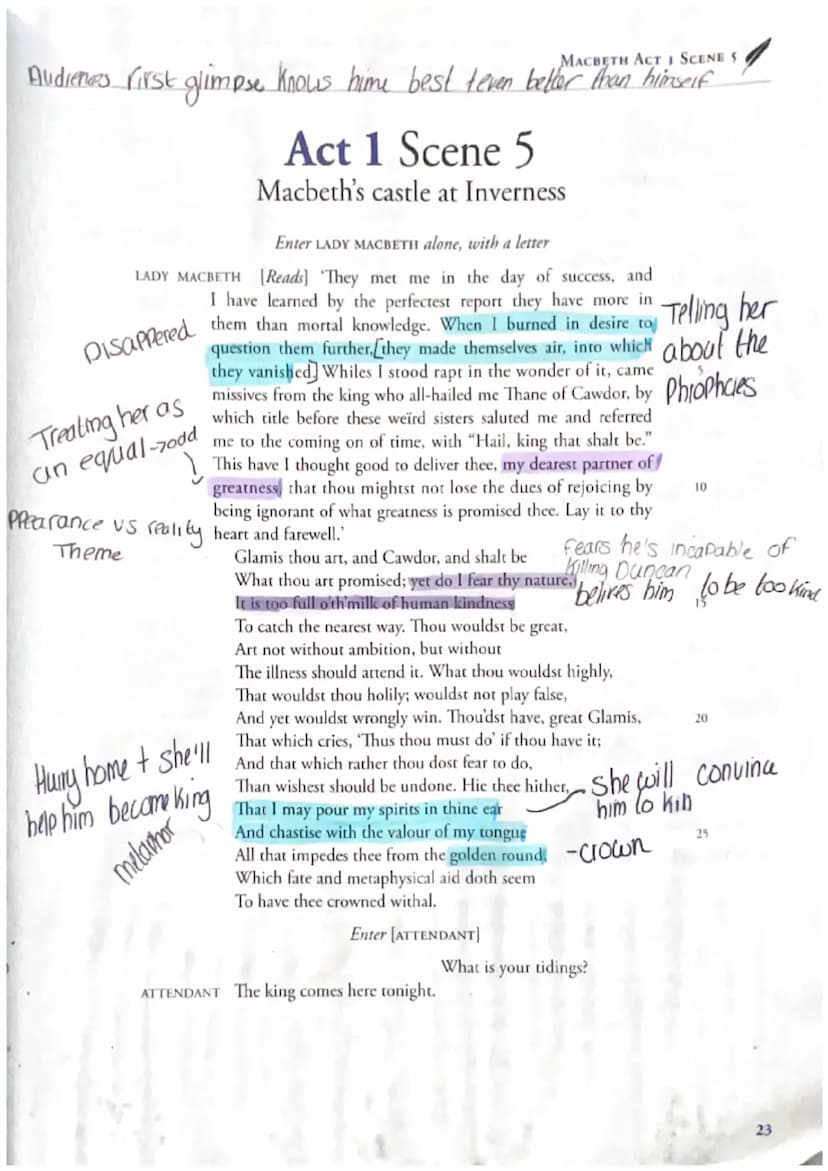 MACBETH ACT 1 SCENE 5
Audiences first glimpse knows hime best + even better than himself
Act 1 Scene 5
Macbeth's castle at Inverness
Enter LADY MACBETH alone, with a letter
LADY MACBETH [Reads] 'They met me in the day of success, and
I have learned by the perfectest report they have more in
them than mortal knowledge. When I burned in desire to
question them further,[they made themselves air, into which
they vanished] Whiles I stood rapt in the wonder of it, came
missives from the king who all-hailed me Thane of Cawdor, by
which title before these weïrd sisters saluted me and referred
me to the coming on of time, with "Hail, king that shalt be."
This have I thought good to deliver thee, my dearest partner of
greatness, that thou mightst not lose the dues of rejoicing by
10
being ignorant of what greatness is promised thee. Lay it to thy
heart and farewell.'
Disappered
Telling her
about the
Phrophcies
Treating her as
an equal → odd
Ppearance vs reality
Theme
Glamis thou art, and Cawdor, and shalt be
What thou art promised; yet do I fear thy nature,
It is too full o'th'milk of human kindness
15
To catch the nearest way. Thou wouldst be great,
Art not without ambition, but without
The illness should attend it. What thou wouldst highly,
That wouldst thou holily; wouldst not play false,
And yet wouldst wrongly win. Thou'dst have, great Glamis,
20
That which cries, 'Thus thou must do' if thou have it;
And that which rather thou dost fear to do,
Than wishest should be undone. Hie thee hither,
That I may pour my spirits in thine ear
And chastise with the valour of my tongue
25
All that impedes thee from the golden round,
Which fate and metaphysical aid doth seem
To have thee crowned withal.
Fears he's incapable of
killing Duncan
belives him to be too kind
Hurry home + she'll
help him become king
metaphor
She will convince
him to kill
-crown
Enter [ATTENDANT]
What is your tidings?
ATTENDANT The king comes here tonight.
23